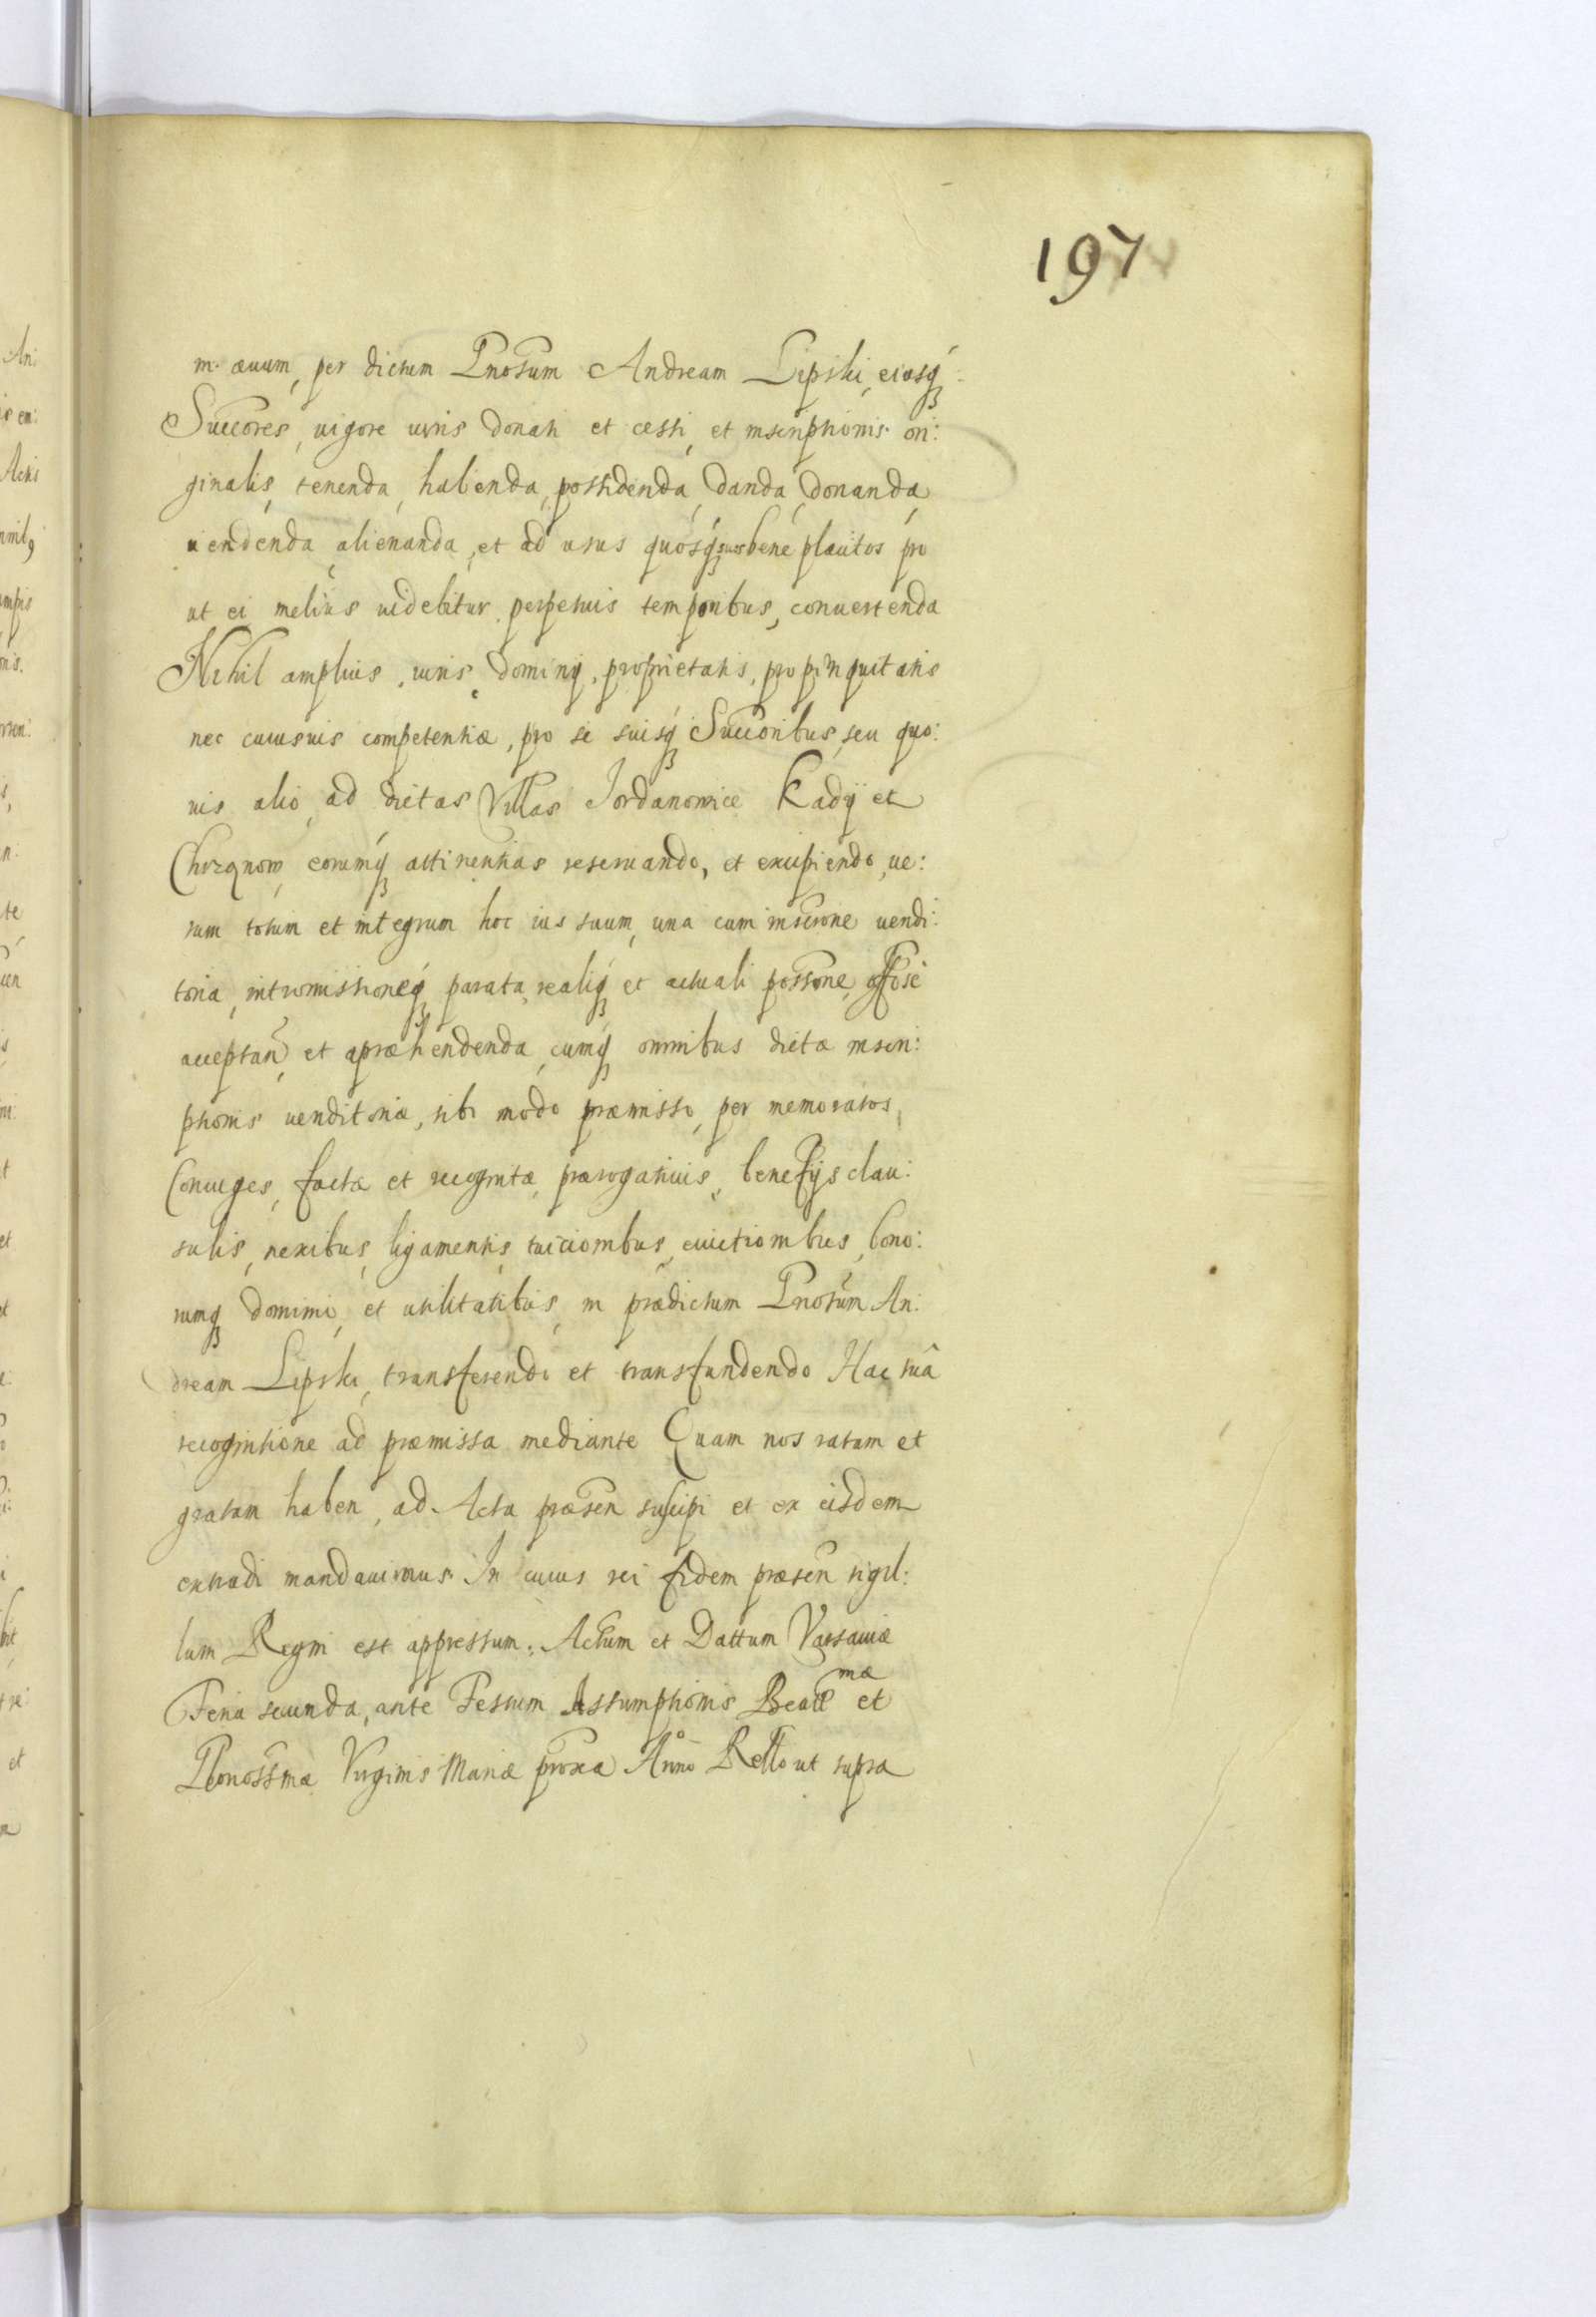 197
in æuum, per dictum Gnosum Andream Lipski, eiusq́
Succores, uigore iuris donati et cessi, et inscriptionis ori:
ginalis, tenenda, habenda, possidenda, danda, donanda,
uendenda, alienanda, et ad usus quosq́ suos bene placitos pro
ut ei melius uidebitur, perpetuis temporibus, conuertenda
Nihil amplius, iuris, dominij, proprietatis, propinquitatis
nec cuiusuis competentiæ, pro se suisq́ Succoribus, seu quo:
uis alio, ad dictas Villas Jordanowice Kady et
Chrzanow, eorumq́ attinentias reseruando, et excipiendo, ue:
rum totum et integrum hoc ius suum, una cum inscrone uendi:
toria, intromissioneq́ parata, realiq́ et actuali possone,
acceptan, et apræhendenda, cumq́ omnibus dictæ inscri:
ptionis uenditoriæ, sibi modo præmisso, per memoratos,
Coniuges, factæ et recognitæ, prærogatiuis, benefijs clau:
sulis, nexibus, ligamentis, tuicionibus, euictionibus, bono:
rumq́ dominio, et utilitatibus, in prædictum Gnosum An:
dream Lipski, transferendo et transfundendo Hac sua
recognitione ad præmissa mediante Quam nos ratam et
gratam haben, ad Acta præsen suscipi et ex eisdem
extradi mandauimus In cuius rei fidem præsen sigil:
lum Regni est appressum. Actum et Dattum Varsauiæ
Feria secunda, ante Festum Assumptionis Beatt mæ et
Glonossmæ Virginis Mariæ proxa Anno Retto ut supra